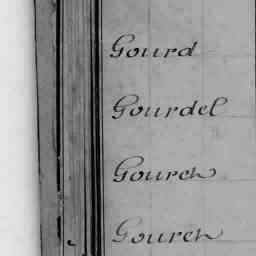 Gourd
Gourdel
Gouren
Gouren